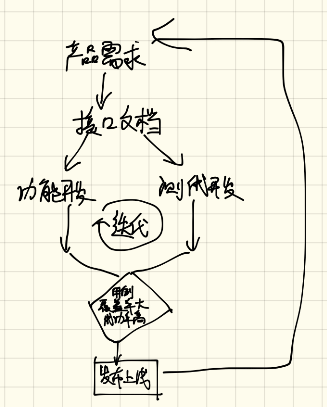 产品需求
接口文档
功能开发
测试开发
迭代
用例
覆盖率大
成功率高
发布上线